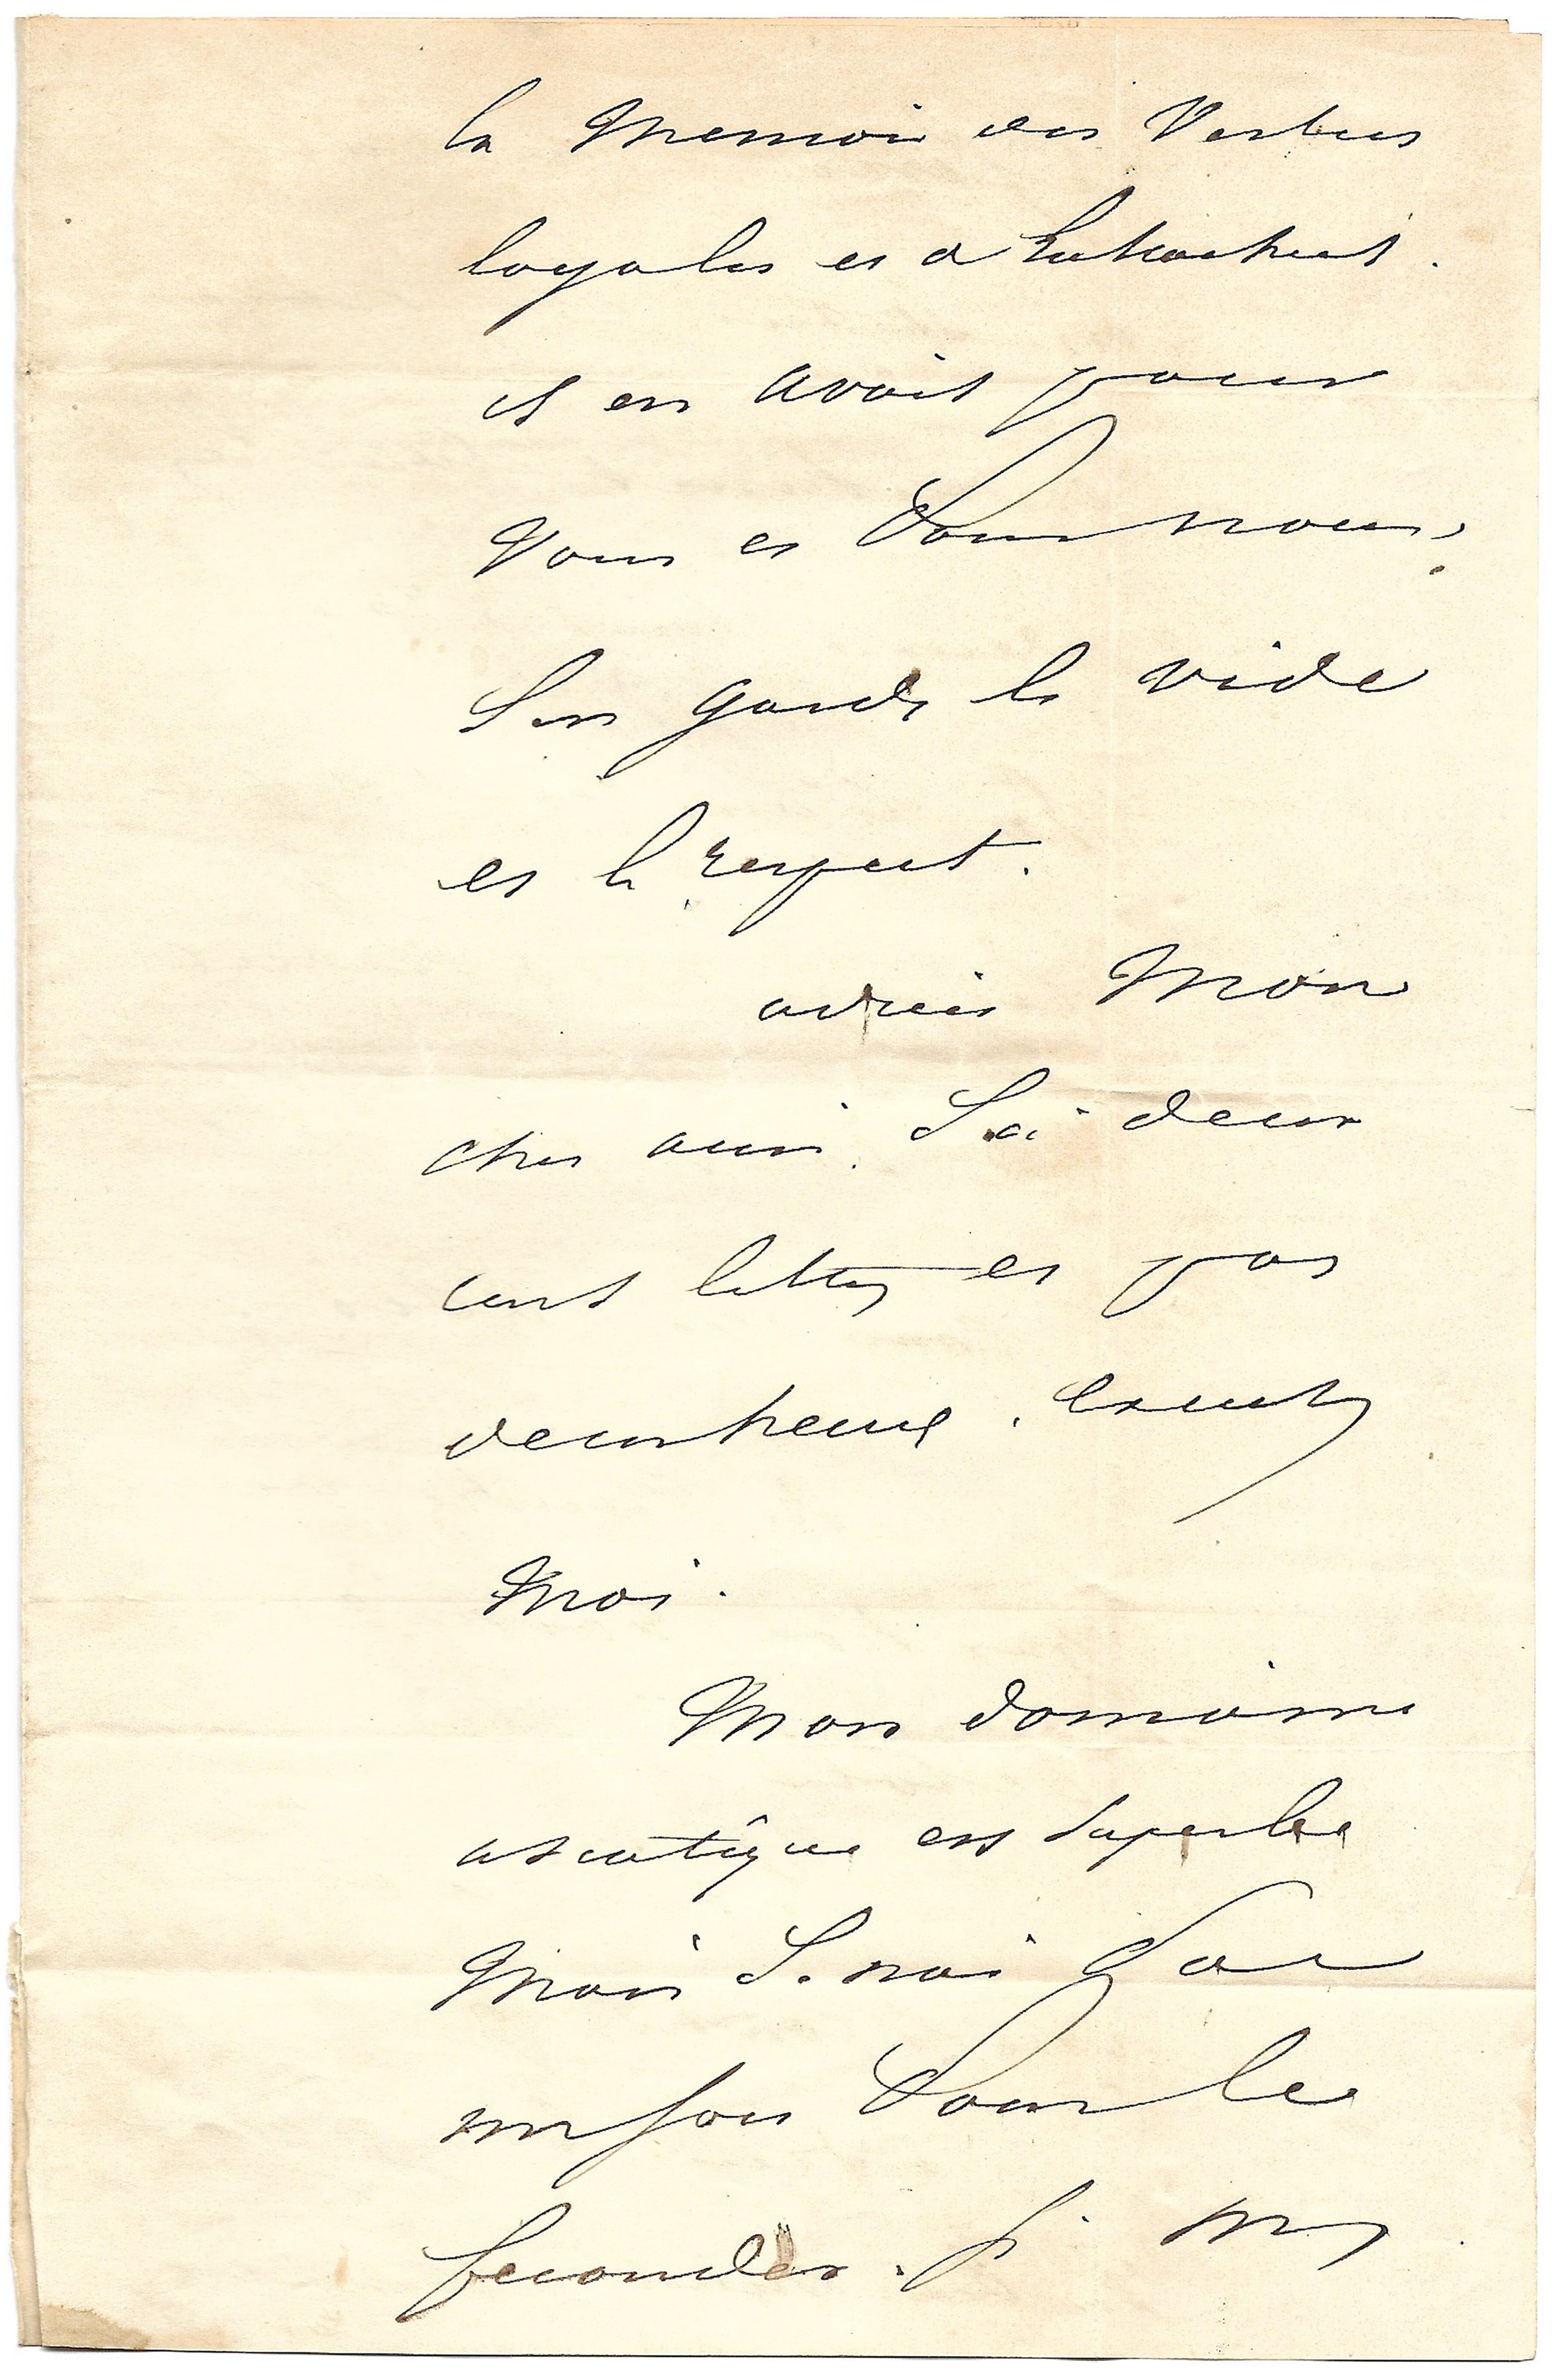 la Memoire des Vertus
loyales et d'
il en avait pour
vous et pour nous.
J'en garde le vide
et le respect.
adieu Mon
cher ami. J'ai deux
cent lettres et pas
deux heures. excusez
Moi.
Mon domaine
asiatique est superbe
Mais Je n'ai pas
un sou pour le
feconder. Si my